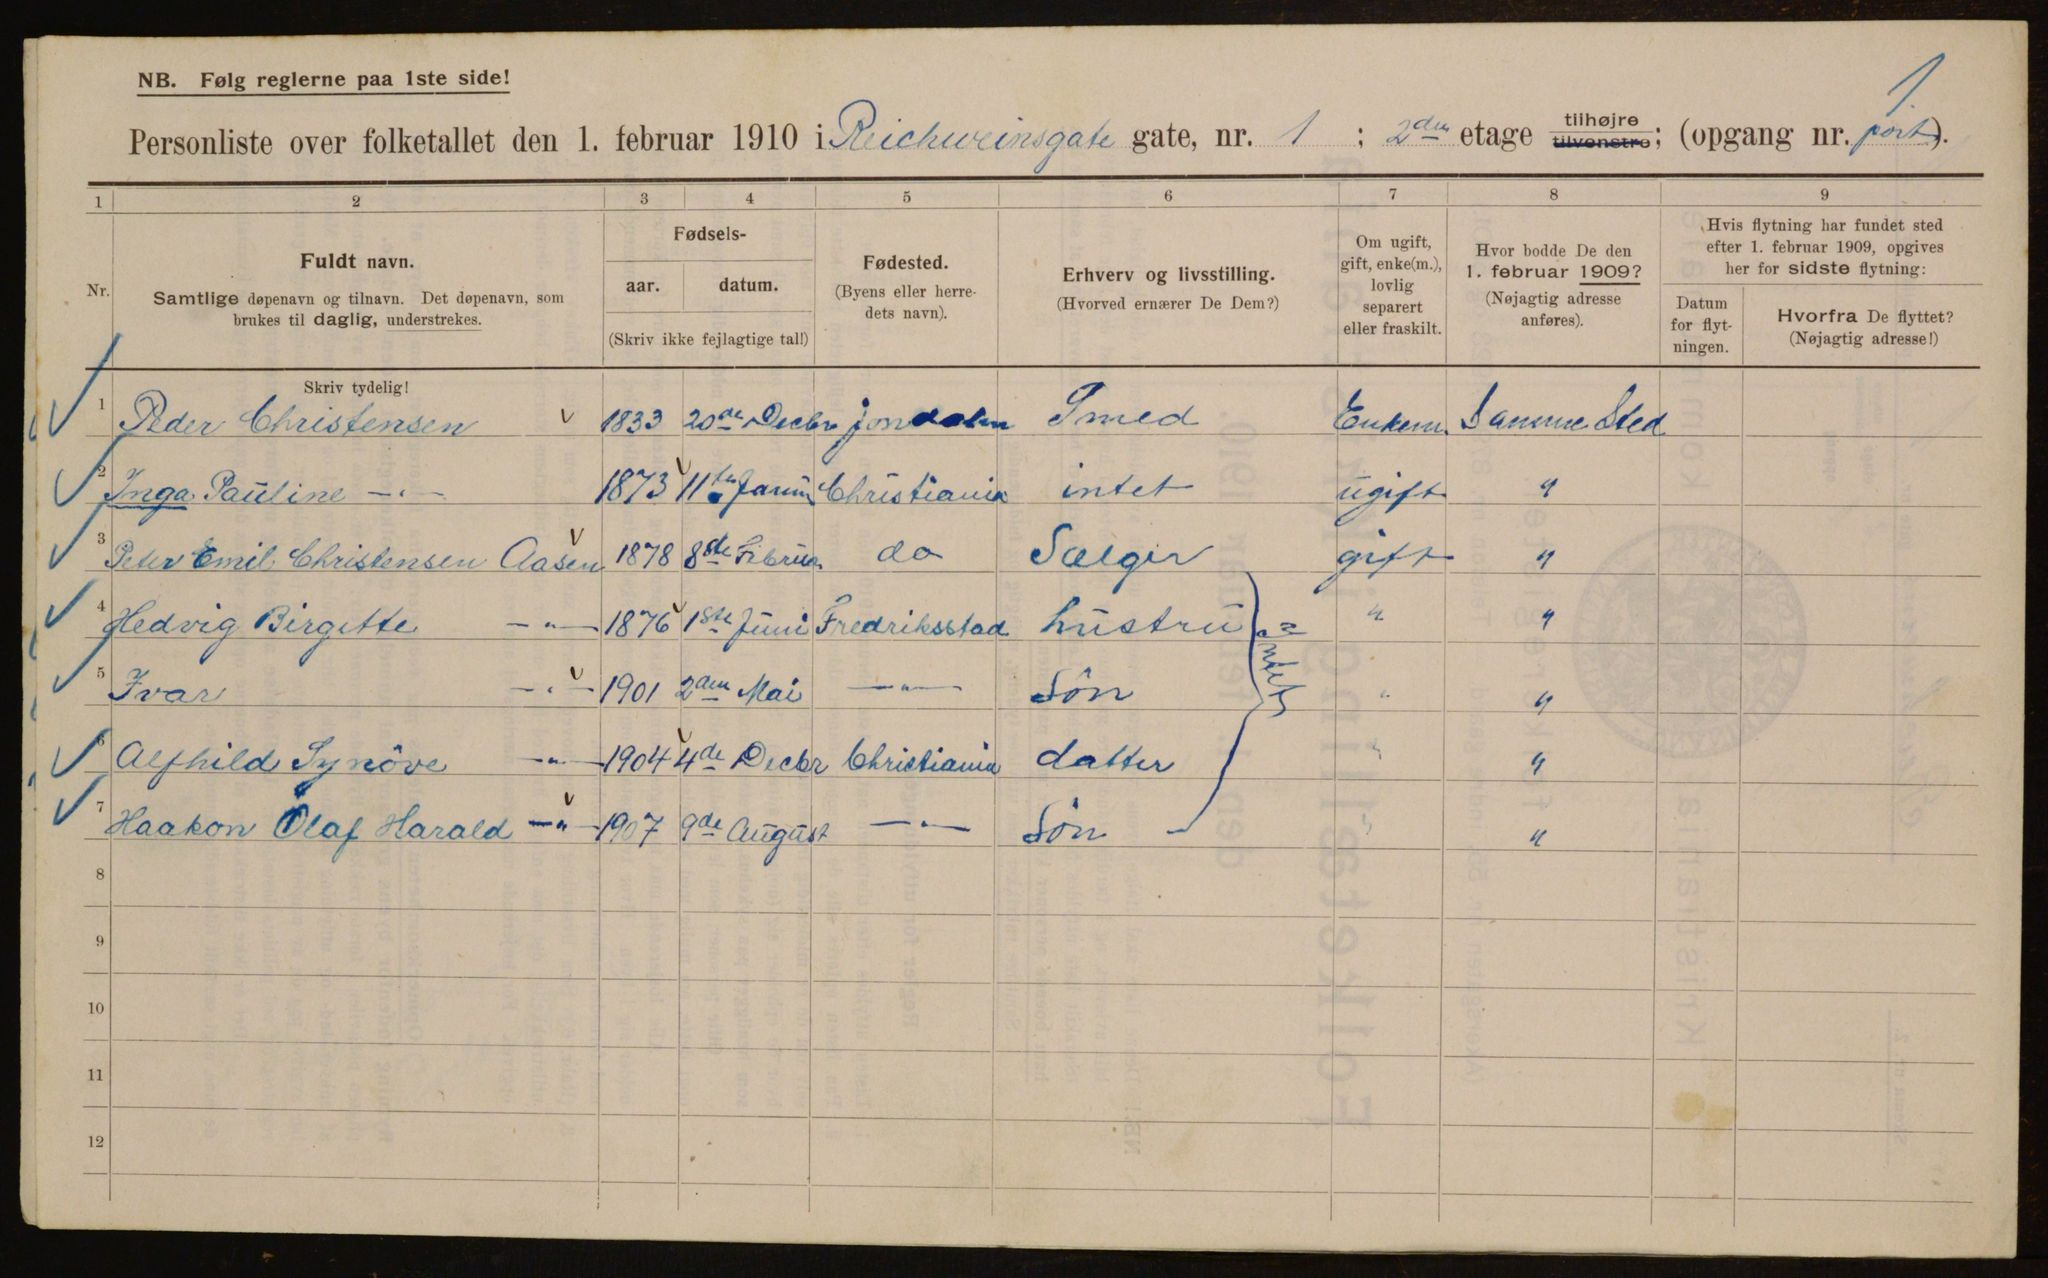 NB. Følg reglerne paa 1ste side!
1
Personliste over folketallet den 1. februar 1910 i Reichweinsgate gate, nr. 1 ; 2den etage tilhøjre tilvenstre; (opgang nr. port).
1 2 3 4 5 6 7 8 9
Nr.
Fuldt navn.
Samtlige døpenavn og tilnavn. Det døpenavn, som
brukes til daglig, understrekes.
Skriv tydelig!
Fødsels-
aar. datum.
(Skriv ikke fejlagtige tal!)
Fødested.
(Byens eller herre-
dets navn).
Erhverv og livsstilling.
(Hvorved ernærer De Dem?)
Om ugift,
gift, enke(m.),
lovlig
separert
eller fraskilt.
Hvor bodde De den
1. februar 1909?
(Nøjagtig adresse
anføres).
Hvis flytning har fundet sted
efter 1. februar 1909, opgives
her for sidste flytning:
Datum
for flyt-
ningen.
Hvorfra De flyttet?
(Nøjagtig adresse!)
1 Peder Christensen 1833 20de Decbr Smed Enkem. Samme Sted
2 Inga Pauline —"— 1873 11te Christiania intet ugift "
3 Peter Emil Christensen Aasen 1878 8de do Sælger gift "
4 Hedvig Birgitte —"— 1876 1ste Juni Fredriksstad hustru " "
5 Ivar —"— 1901 2den Mai —"— Sön " "
intet
6 Alfhild Synöve —"— 1904 4de Decbr Christiania datter " "
7 Haakon Olaf Harald —"— 1907 9de August —"— Sön " "
8
9
10
11
12